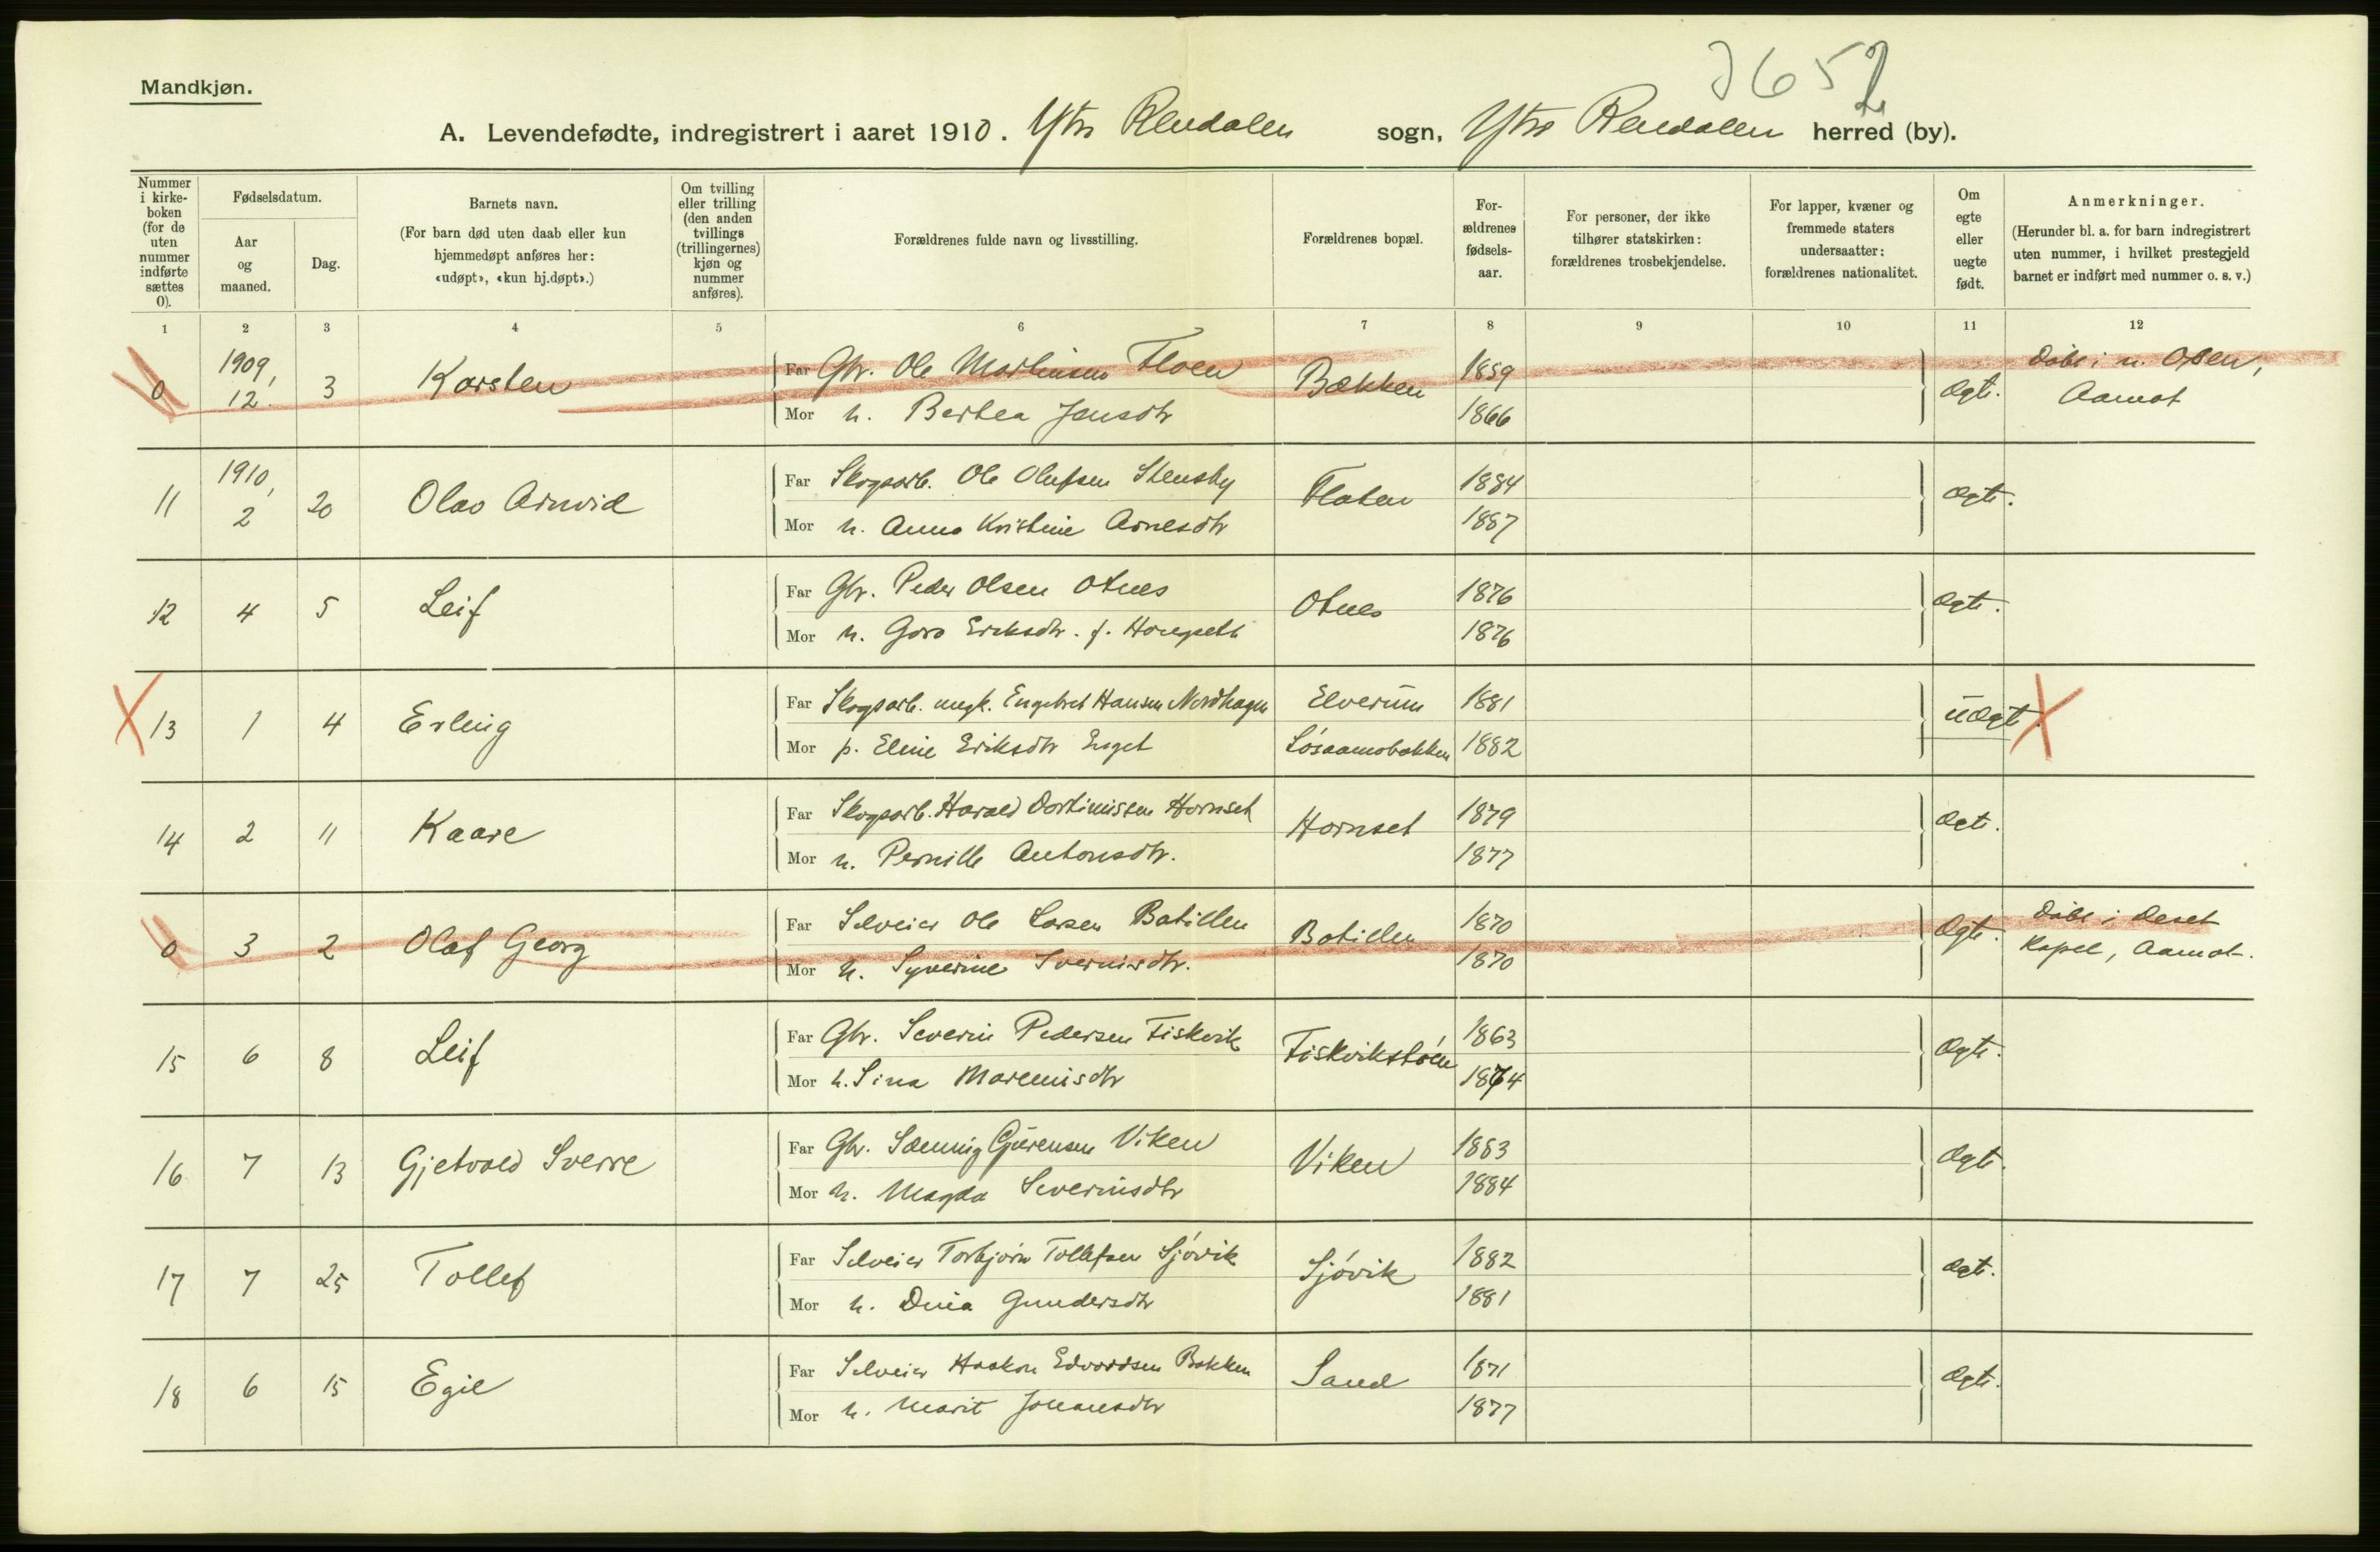 3652
Mandkjøn.
A. Levendefødte, indregistrert i aaret 1910. Ytre Rendalen sogn, Ytre Rendalen herred (by).
Nummer i kirke-boken (for de uten nummer indførte sættes 0).
Fødselsdatum.
Aar og maaned.
Dag.
Barnets navn.
(For barn død uten daab eller kun hjemmedøpt anføres her: «udøpt», «kun hj.døpt».)
Om tvilling eller trilling (den anden tvillings (trillingernes) kjøn og nummer anføres).
Forældrenes fulde navn og livsstilling.
Forældrenes bopæl.
For-ældrenes fødsels-aar.
For personer, der ikke tilhører statskirken: forældrenes trosbekjendelse.
For lapper, kvæner og fremmede staters undersaatter: forældrenes nationalitet.
Om egte eller uegte født.
Anmerkninger.
(Herunder bl. a. for barn indregistrert uten nummer, i hvilket prestegjeld barnet er indført med nummer o. s. v.)
1 2 3 4 5 6 7 8 9 10 11 12
0 1909, 12. 3 Karsten Far Gbr. Ole Martinsen Floen Bækken 1859 Ægte. Døbt i n. Osen, Aamot
Mor h. Berthea Jensdtr 1866
11 1910, 2 20 Olav Arnvid Far Skogsarb. Ole Olufsen Stensby Floten 1884 Ægte.
Mor h. Anna Kristine Arnesdtr 1887
12 4 5 Leif Far Gbr. Peder Olsen Otnes Otnes 1876 Ægte.
Mor h. Goro Eriksdtr. f. 1876
13 1 4 Erling Far Skogsarb. ungk. Engebret Hansen Nordhagen Elverum 1881 uægte.
Mor p. Eline Eriksdtr Enget Løsaamobakken 1882
14 2 11 Kaare Far Skogsarb. Harald Hornset Hornset 1879 Ægte.
Mor h. Pernille Antonsdtr. 1877
0 3 2 Olaf Georg Far Selveier Ole Larsen Batillen Batillen 1870 Ægte. Døbt i Deset Kapel, Aamot.
Mor h. Syverine 1870
15 6 8 Leif Far Gbr. Severin Pedersen Fiskvik Fiskvikstøen 1863 Ægte.
Mor h. Sina Mareniusdtr 1874
16 7 13 Gjetvald Sverre Far Gbr. Sæming Gjørensen Viken Viken 1883 Ægte.
Mor h. Magda Severinsdtr 1884
17 7 25 Tollef Far Selveier Torbjørn Tollefsen Sjøvik Sjøvik 1882 Ægte.
Mor h. Dina Gundersdtr 1881
18 6 15 Egil Far Selveier Haakon Edvardsen Bakken Sand 1871 Ægte.
Mor h. Marit Johansdtr 1877